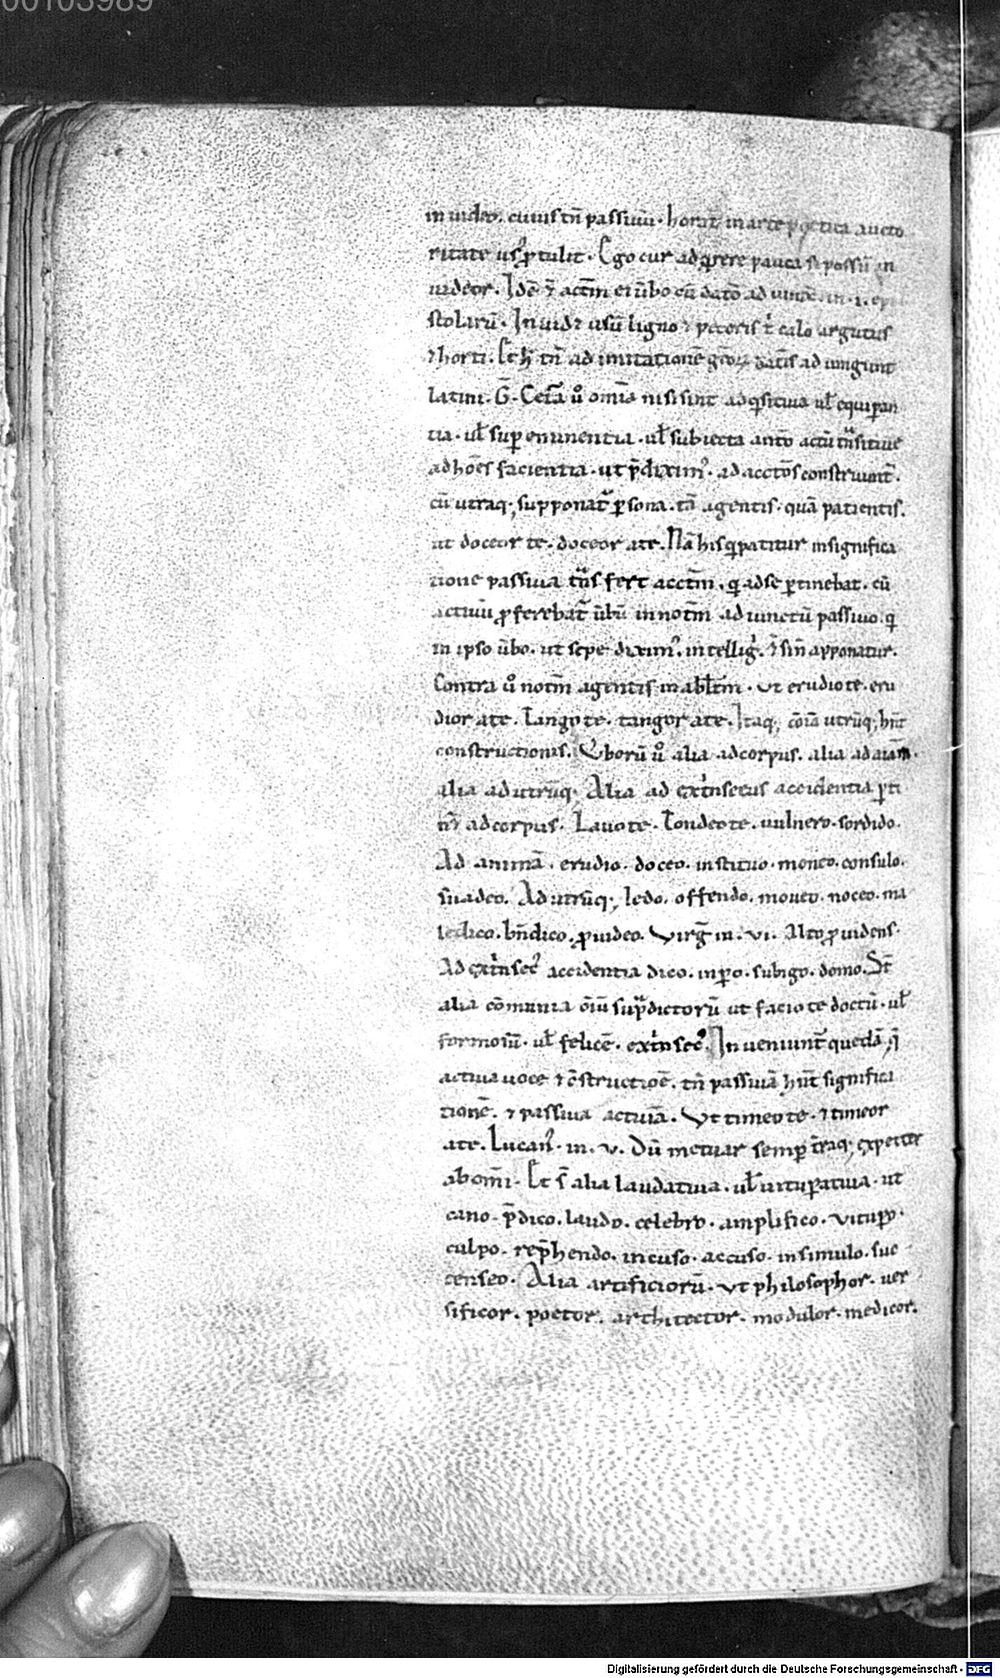 00103989
in video. cuius tn̄ passiuū. horat̄ in arte poetica aucto
ritate usꝰ ꝓtulit. Ego cur adq̄rere pauca si possū in
uideor. Idē ⁊ actm̄ ei ūbo cū datō ad
stolarū. Inuidꝫ usū ligno ⁊ pecoris t̄ calo argutus
⁊ horti. Et h̄ tn̄ ad imitationē ad iungunt
latini. G̅. Cet̄a u̅o omīa nisi sint adq̄sitiua ul̄ equiꝑan
tia. ul̄ suꝑeminentia. ul̄ subiecta antō actū tn̄sitiue
ad hoēs facientia. ut p̄diximꝰ. ad acctōs construunt̄.
cū utraq; supponat̄ ꝑsona. tā agentis. quā patientis.
ut doceor te. doceor a te. Nā his q̄ patitur in significa
tione passiua tn̄s fert acctm̄. q̄ ad se ꝑtinebat. cū
actiuū ꝓferebat̄ ūbū in notm̄ ad iunctū passiuo. q̄
in ipso ūbo. ut sepe diximꝰ. intelligr̄. ⁊ si n̄ apponatur.
Contra u̅o notm̄ agentis in ablt̄m. Vt erudio te. eru
dior a te. Tango te. tangor a te. Itaq; cōia utrūq; hn̄t
constructionis. Ūborū u̅o alia ad corpus. alia ad aiam̄.
alia ad utrūq; Alia ad ext̄nsecus accidentia ꝑti
nē ad corpus. Lauo te. Tondeo te. uulnero. sordido.
Ad animā. erudio. doceo. instituo. moneo. consulo.
suadeo. Ad utrūq; ledo. offendo. moueo. noceo. ma
ledico. bn̄dico. ꝓuideo. Virg̅ in. vi. Alto ꝓuidens.
Ad ext̄nsecꝰ accidentia dico. inꝑo. subigo. domo. St̄
alia cōmunia oīū sup̄dictorū ut facio te doctū. ul̄
formosū. ul̄ felicē. ext̄nsecꝰ. Inueniunt̄ quedā q̄
actiua uoce ⁊ cōstructioē. tn̄ passiuā hn̄t significa
tionē. ⁊ passiua actiuā. Vt timeo te. ⁊ timeor
a te. Lucanꝰ. in. v. Dū metuar semꝑ t̄raq; expecter
ab omī. Et s̄ alia laudatiua. ul̄ uituꝑatiua. ut
cano. p̄dico. laudo. celebro. amplifico. vituꝑo.
culpo. rep̄hendo. incuso. accuso. insimulo. suc
censeo. Alia artificiorū. Vt philosophor. uer
sificor. poetor. architector. modulor. medicor.
Digitalisierung gefördert durch die Deutsche Forschungsgemeinschaft - DFG